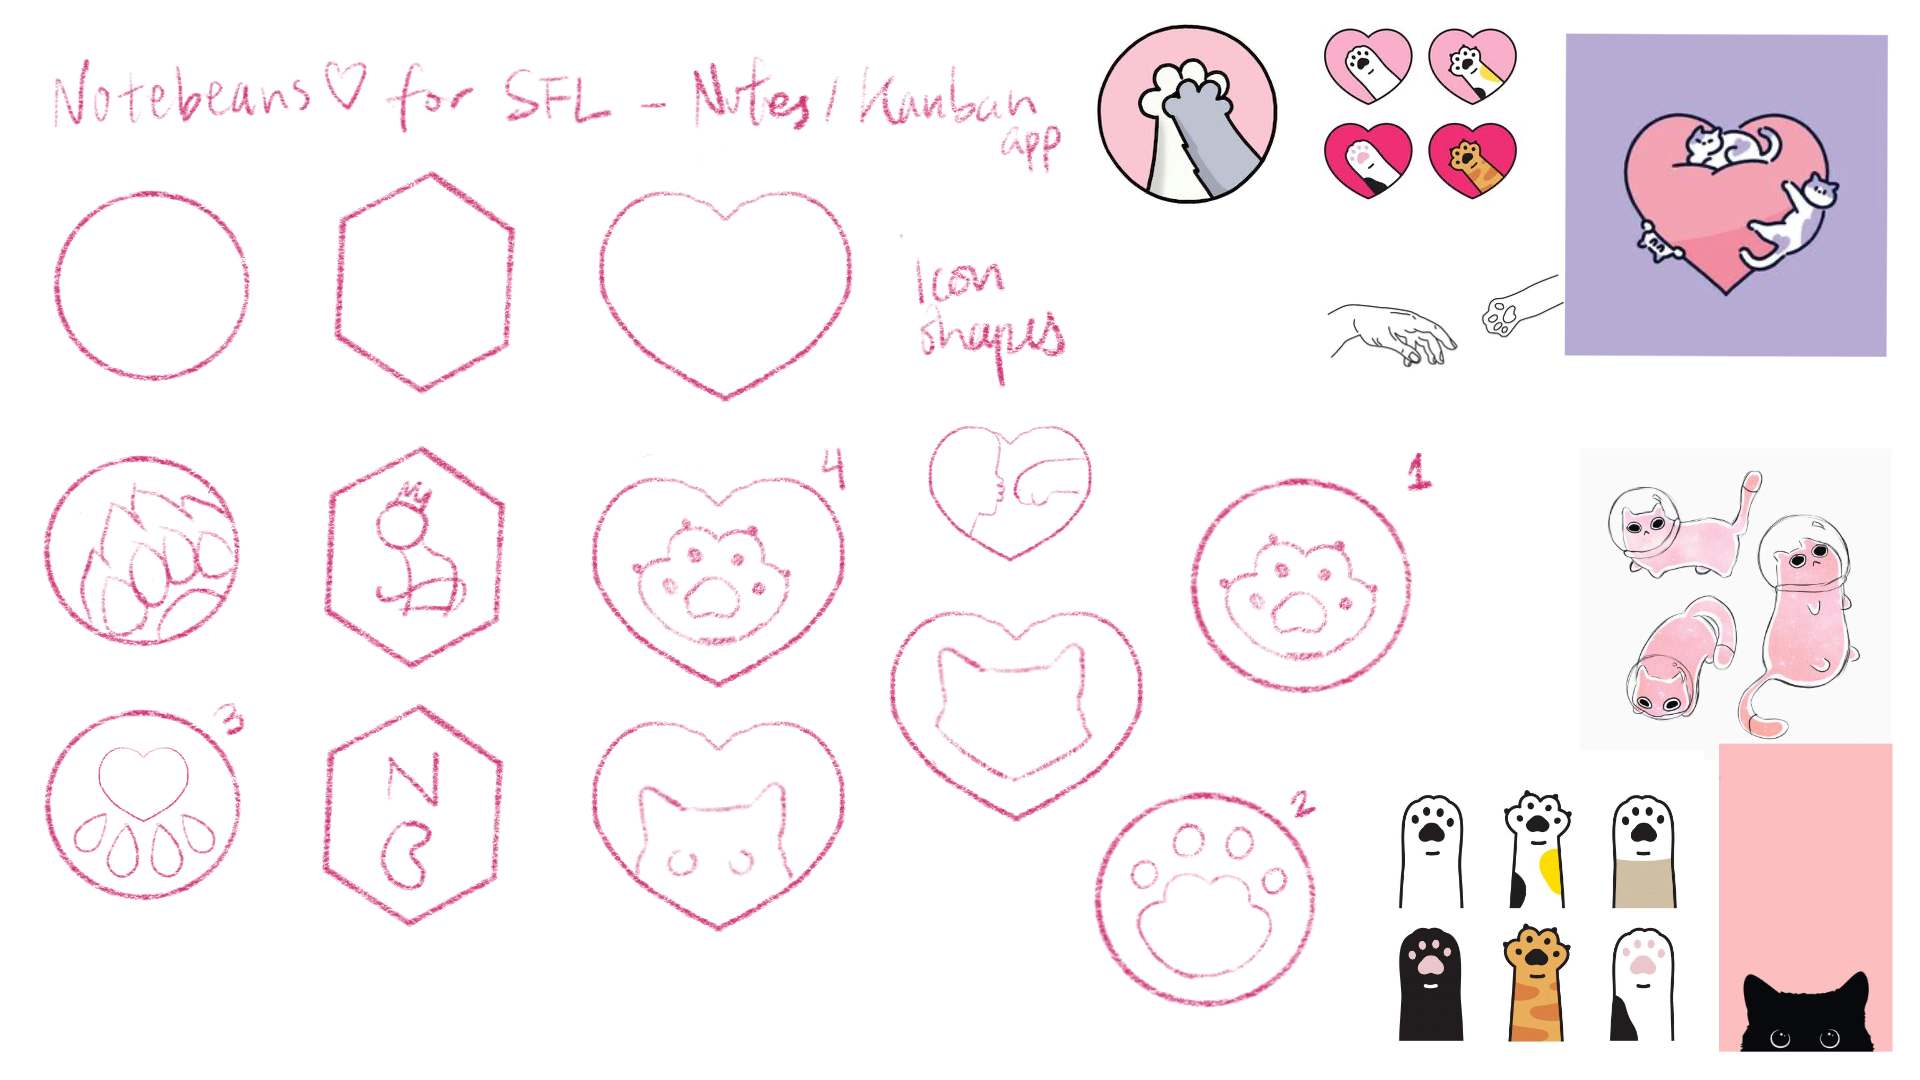 Notebeans♡ for SFL - Notes/Kanban
app
Icon
Shapes
4
1
3
N
B
2